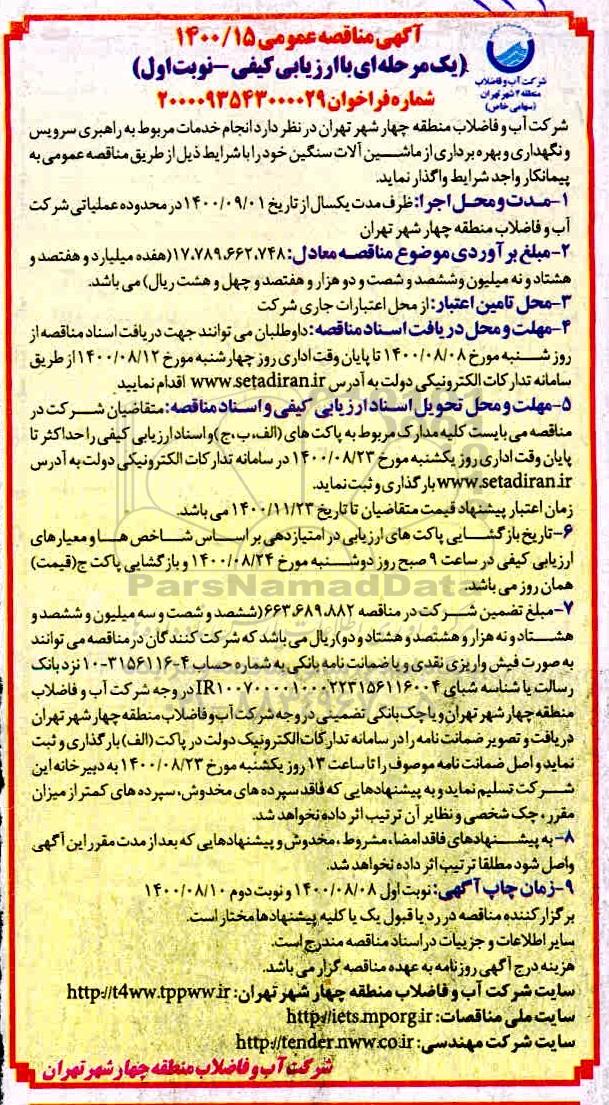 آگهی مناقصه عمومی ۱۴۰۰/۱۵
(یک مرحله ای با ارزیابی کیفی - نوبت اول)
شماره فراخوان ۲۰۰۰۰۹۳۵۴۳۰۰۰۰۲۹
شرکت آب و فاضلاب
منطقه ۴ شهر تهران
(سهامی خاص)
شرکت آب و فاضلاب منطقه چهار شهر تهران در نظر دارد انجام خدمات مربوط به راهبری سرویس
و نگهداری و بهره برداری از ماشین آلات سنگین خود را با شرایط ذیل از طریق مناقصه عمومی به
پیمانکار واجد شرایط واگذار نماید.
۱-مدت و محل اجرا: ظرف مدت یکسال از تاریخ ۱۴۰۰/۰۹/۰۱ در محدوده عملیاتی شرکت
آب و فاضلاب منطقه چهار شهر تهران
۲-مبلغ برآوردی موضوع مناقصه معادل: ۱۷،۷۸۹،۶۶۲،۷۴۸(هفده میلیارد و هفتصد و
هشتاد و نه میلیون و ششصد و شصت و دو هزار و هفتصد و چهل و هشت ریال) می باشد.
۳-محل تامین اعتبار: از محل اعتبارات جاری شرکت
۴-مهلت و محل دریافت اسناد مناقصه: داوطلبان می توانند جهت دریافت اسناد مناقصه از
روز شنبه مورخ ۱۴۰۰/۰۸/۰۸ تا پایان وقت اداری روز چهارشنبه مورخ ۱۴۰۰/۰۸/۱۲ از طریق
سامانه تدارکات الکترونیکی دولت به آدرس www.setadiran.ir اقدام نمایید
۵-مهلت و محل تحویل اسناد ارزیابی کیفی و اسناد مناقصه: متقاضیان شرکت در
مناقصه می بایست کلیه مدارک مربوط به پاکت های (الف، ب، ج) و اسناد ارزیابی کیفی را حداکثر تا
پایان وقت اداری روز یکشنبه مورخ ۱۴۰۰/۰۸/۲۳ در سامانه تدارکات الکترونیکی دولت به آدرس
www.setadiran.ir بارگذاری و ثبت نماید.
زمان اعتبار پیشنهاد قیمت متقاضیان تا تاریخ ۱۴۰۰/۱۱/۲۳ می باشد.
۶-تاریخ بازگشایی پاکت های ارزیابی در امتیازدهی بر اساس شاخص ها و معیارهای
ارزیابی کیفی در ساعت ۹ صبح روز دوشنبه مورخ ۱۴۰۰/۰۸/۲۴ و بازگشایی پاکت ج(قیمت)
همان روز می باشد.
ParsNamadData
۷-مبلغ تضمین شرکت در مناقصه ۶۶۳،۶۸۹،۸۸۲(ششصد و شصت و سه میلیون و ششصد و
هشتاد و نه هزار و هشتصد و هشتاد و دو)ریال می باشد که شرکت کنندگان در مناقصه می توانند
به صورت فیش واریزی نقدی و یا ضمانت نامه بانکی به شماره حساب ۴-۳۱۵۶۱۱۶-۱۰ نزد بانک
رسالت یا شناسه شبای IR۱۰۰۷۰۰۰۰۱۰۰۰۲۲۳۱۵۶۱۱۶۰۰۴ در وجه شرکت آب و فاضلاب
منطقه چهار شهر تهران و یا چک بانکی تضمینی در وجه شرکت آب و فاضلاب منطقه چهار شهر تهران
دریافت و تصویر ضمانت نامه را در سامانه تدارکات الکترونیک دولت در پاکت (الف) بارگذاری و ثبت
نماید و اصل ضمانت نامه موصوف را تا ساعت ۱۳ روز یکشنبه مورخ ۱۴۰۰/۰۸/۲۳ به دبیرخانه این
شرکت تسلیم نماید و به پیشنهادهایی که فاقد سپرده های مخدوش، سپرده های کمتر از میزان
مقرر، چک شخصی و نظایر آن ترتیب اثر داده نخواهد شد.
۸- به پیشنهادهای فاقد امضا، مشروط، مخدوش و پیشنهادهایی که بعد از مدت مقرر این آگهی
واصل شود مطلقا ترتیب اثر داده نخواهد شد.
۹-زمان چاپ آگهی: نوبت اول ۱۴۰۰/۰۸/۰۸ و نوبت دوم ۱۴۰۰/۰۸/۱۰
برگزارکننده مناقصه در رد یا قبول یک یا کلیه پیشنهادها مختار است.
سایر اطلاعات و جزییات در اسناد مناقصه مندرج است.
هزینه درج آگهی روزنامه به عهده مناقصه گزار می باشد.
سایت شرکت آب و فاضلاب منطقه چهار شهر تهران: http://t4ww.tppww.ir
سایت ملی مناقصات: http://iets.mporg.ir
سایت شرکت مهندسی: http://tender.nww.co.ir
شرکت آب و فاضلاب منطقه چهار شهر تهران